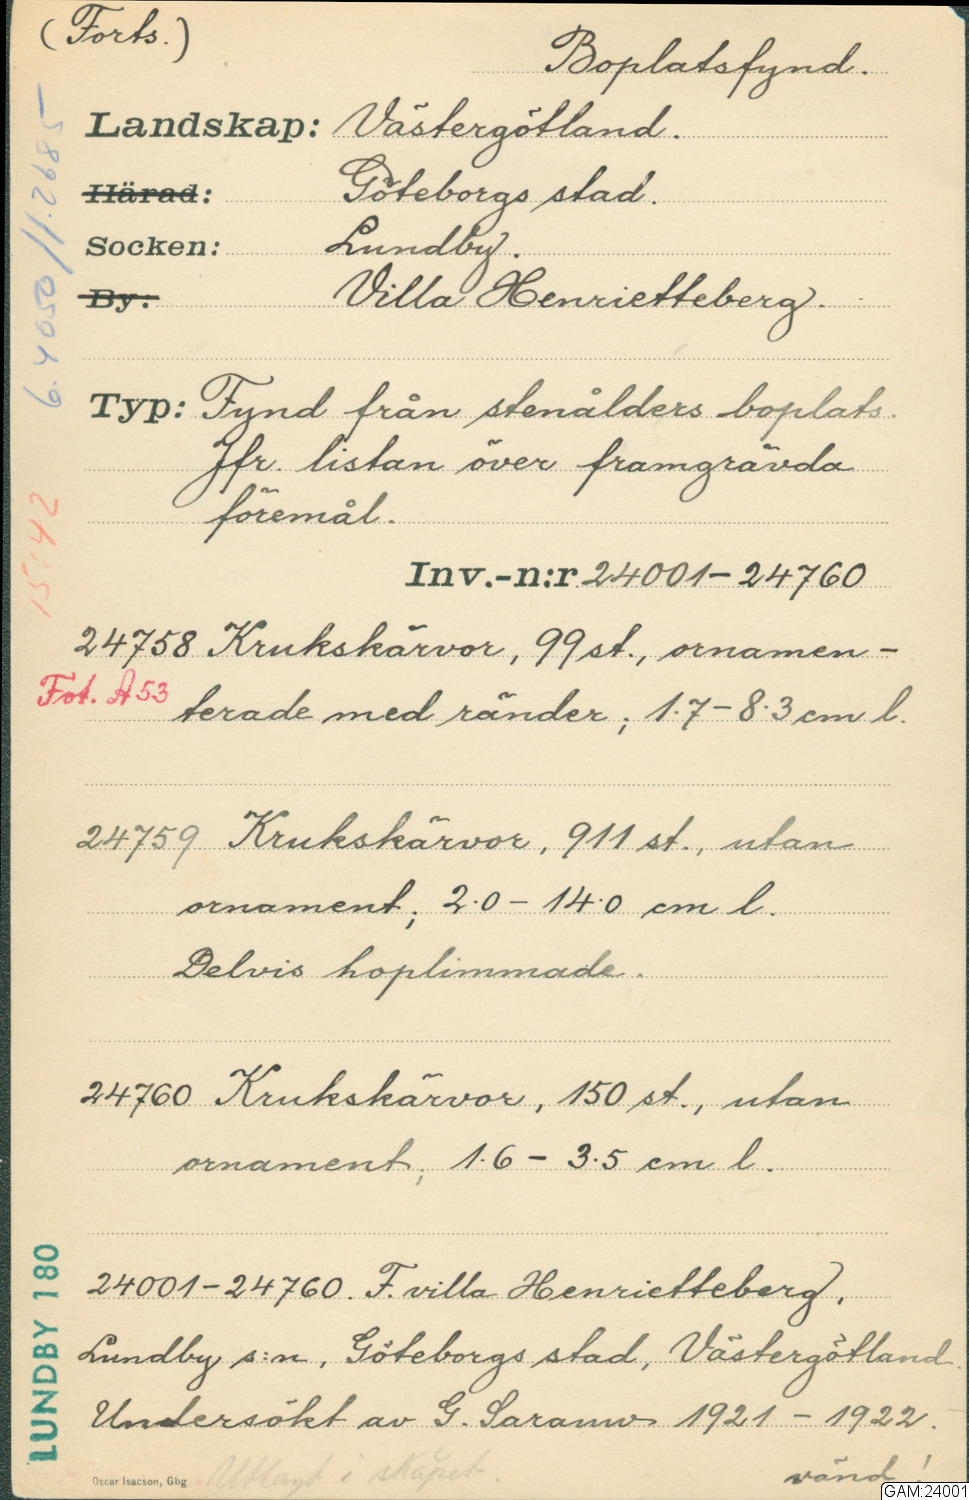 (Forts.)
Boplatsfynd.
Landskap: Västergötland.
Härad: Göteborgs stad.
Socken: Lundby.
By: Villa Henrietteberg.
Typ: Fynd från stenålders boplats.
Jfr. listan över framgrävda
föremål.
Inv.-n:r 24001-24760
24758 Krukskärvor, 99 st., ornamen-
Fot. A 53
terade med ränder; 1.7-8.3 cm l.
24759 Krukskärvor, 911 st., utan
ornament; 2.0-14.0 cm l.
Delvis hoplimmade.
24760 Krukskärvor, 150 st., utan
ornament; 1.6-3.5 cm l.
24001-24760. F. villa Henrietteberg,
Lundby s:n, Göteborgs stad, Västergötland.
Undersökt av G. Sarauw 1921-1922.
i skåpet.
vänd!
Oscar Isacson, Gbg
LUNDBY 180
15:42
GAM:24001